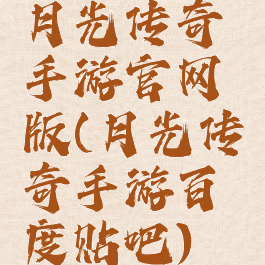 月光传奇
手游官网
版(月光传
奇手游百
度贴吧)